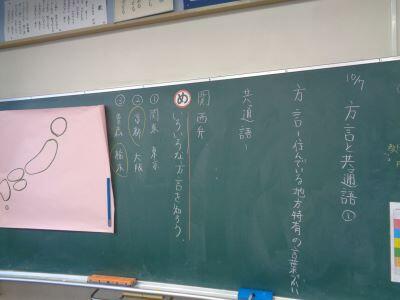 10/7 方言と共通語①
方言－住んでいる地方特有の言葉づかい
共通語－
関西弁
め いろいろな方言を知ろう。
① 関東 東京
② 京都 大阪
③ 青森 栃木